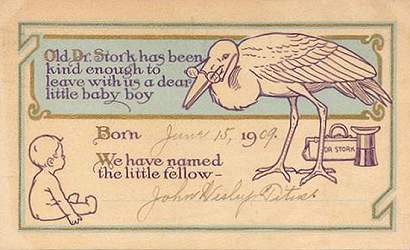 Old Dr. Stork has been
kind enough to
leave with us a dear
little baby boy
Born June 15, 1909.
DR STORK
We have named
the little fellow—
John Wesley Titus